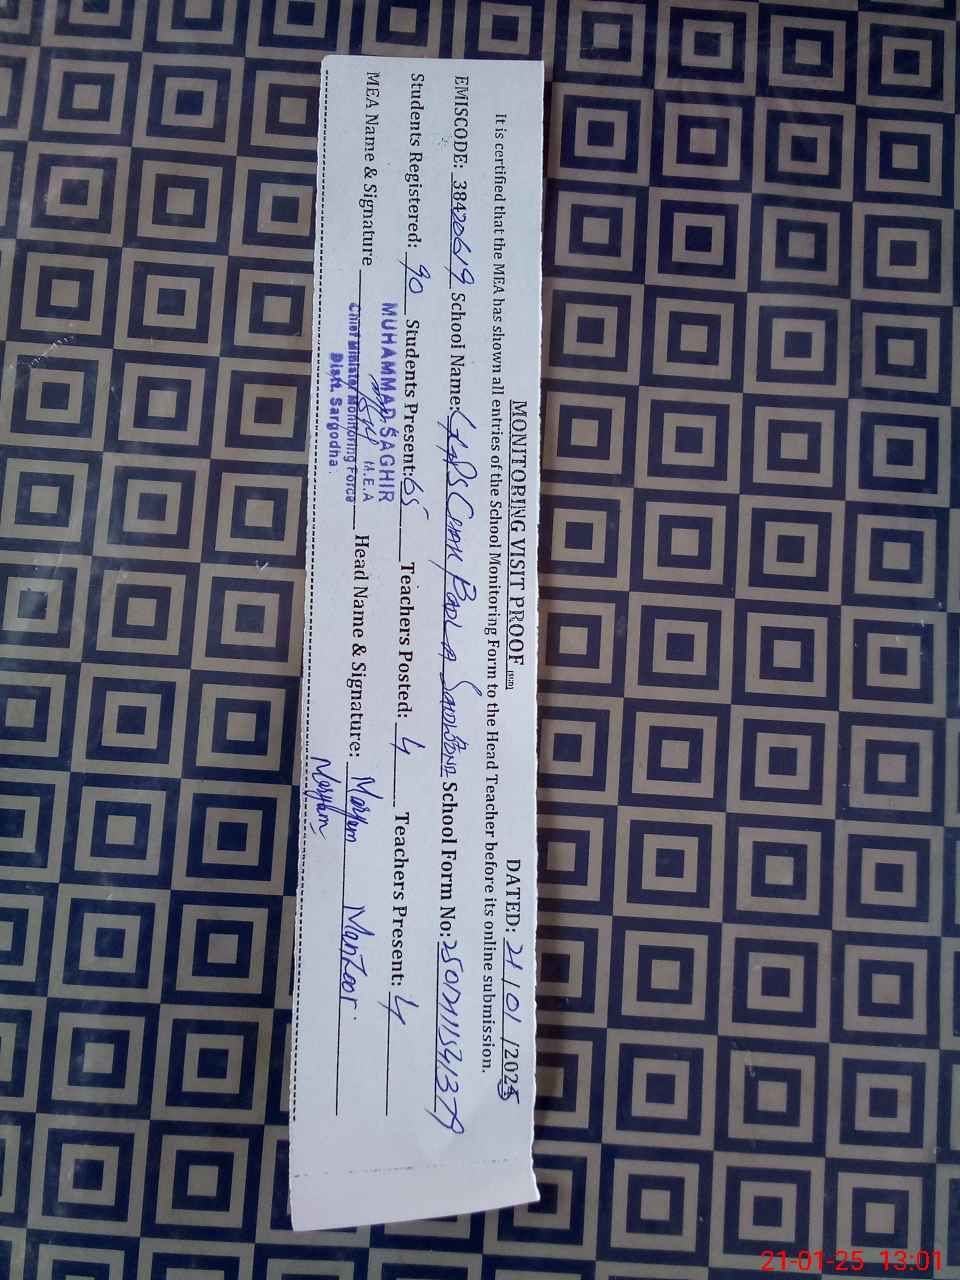 MONITORING VISIT PROOF DATED: 21/01/2025
It is certified that the MEA has shown all entries of the School Monitoring Form to the Head Teacher before its online submission.
EMISCODE: 38420619 School Name: GGPS CHAK School Form No:
Students Registered: 90 Students Present: 65 Teachers Posted: 4 Teachers Present: 4
MEA Name & Signature Head Name & Signature: Maryam Manzoor
MUHAMMAD SAGHIR
M.E.A
Chief Minister Monitoring Force
Distt. Sargodha.
Maryam
21-01-25 13:01